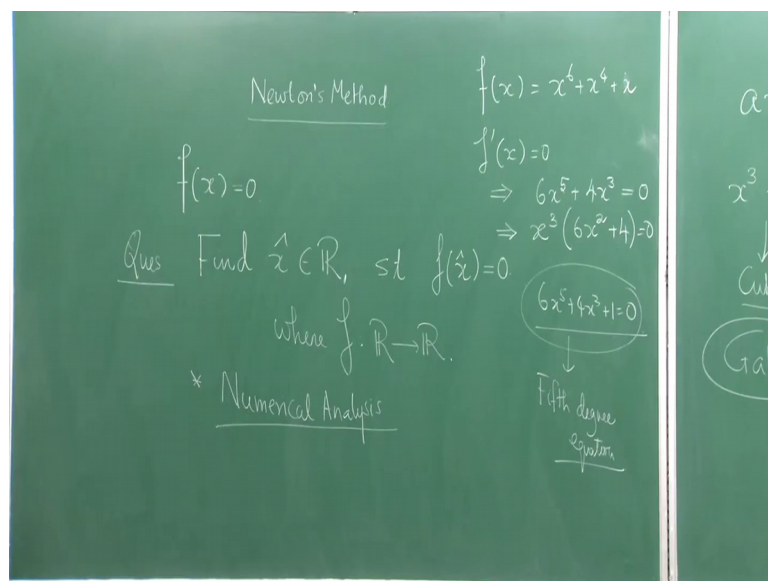 Newton's Method
f(x)=0
Ques Find x̂ ∈ ℝ, st f(x̂)=0
where f: ℝ→ℝ.
* Numerical Analysis
f(x) = x⁶+x⁴+x
f'(x)=0
⇒ 6x⁵+4x³=0
⇒ x³(6x²+4)=0
6x⁵+4x³+1=0
↓
Fifth degree
equation
x³